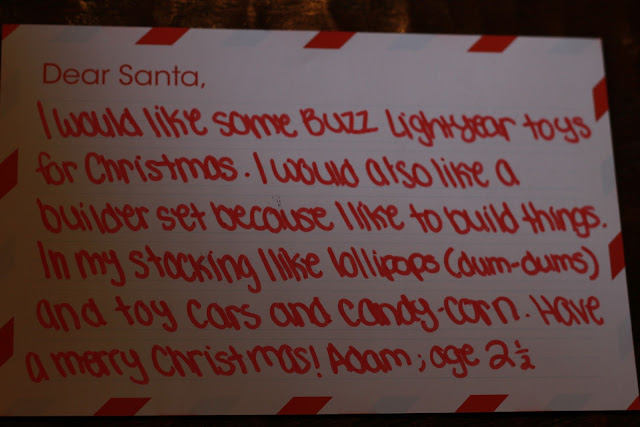 Dear Santa,
I would like some Buzz Lightyear toys
for Christmas. I would also like a
builder set because I like to build things.
In my stocking I like lollipops (dum-dums)
and toy cars and candy-corn. Have
a merry Christmas! Adam; age 2½